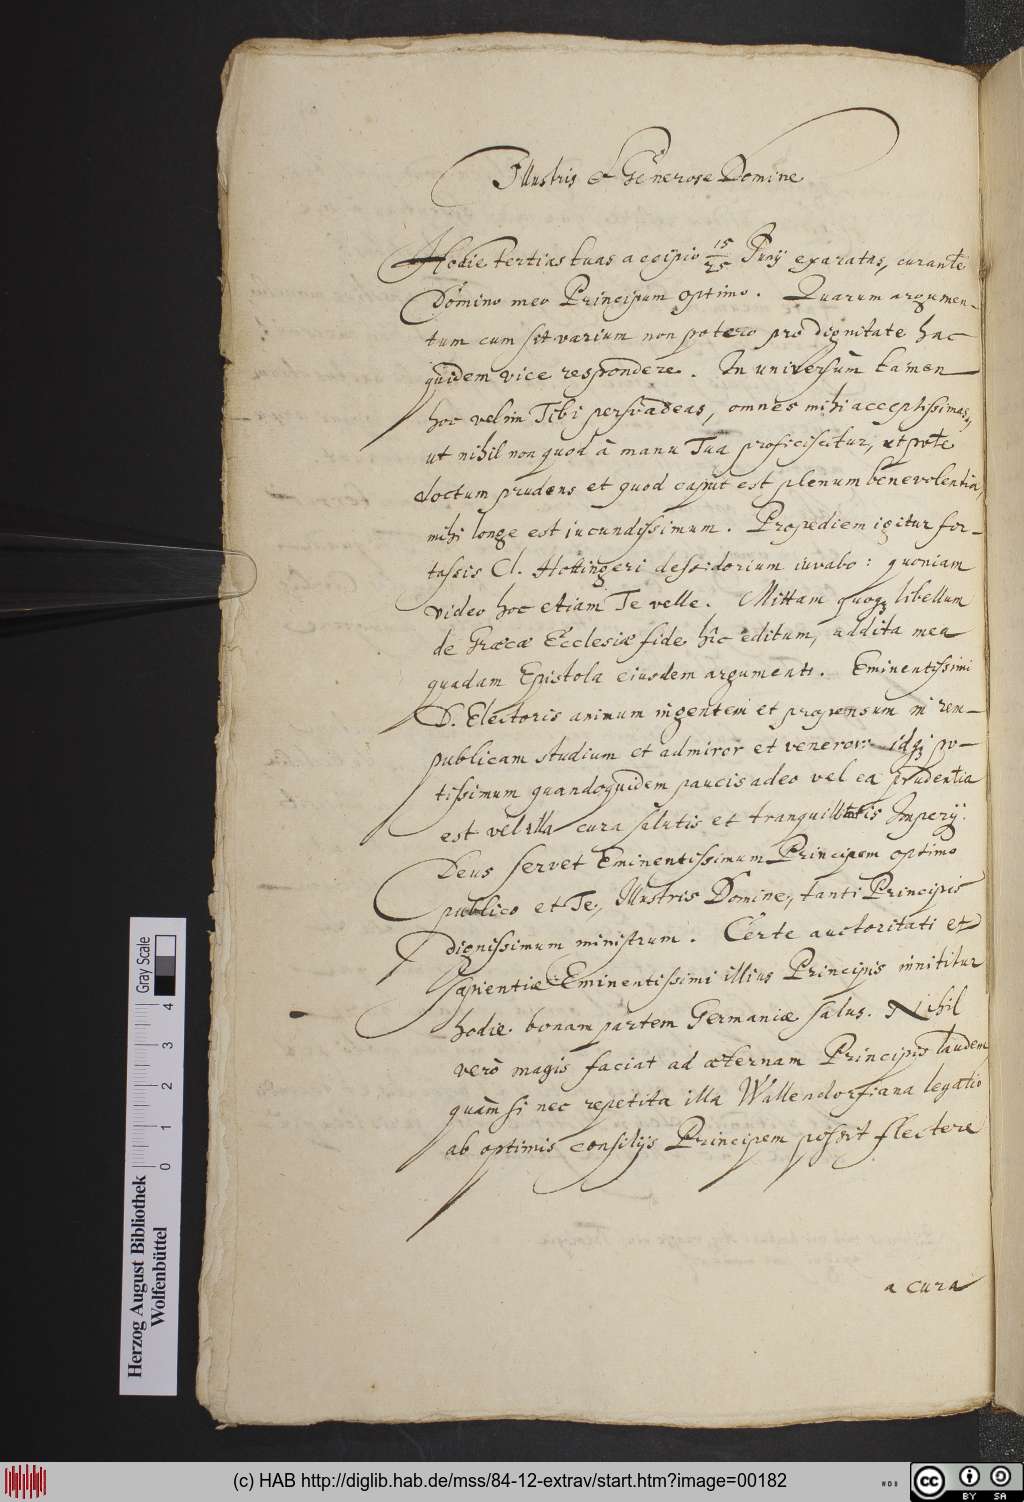 Illustris et Generose Domine
Hodie tertias tuas accipio 15/25 Junij exaratas, curante
Domino meo Principum optimo. Quarum argumen-
tum cum sit varium non potero pro dignitate hac
quidem vice respondere. In universùm tamen
hoc velim Tibi persuadeas, omnes mihi acceptissimas,
ut nihil non quod à manu Tua proficiscitur, utpote
doctum prudens et quod caput est plenum benevolentia,
mihi longe est iucundissimum. Propediem igitur for-
tassis Cl. Hottingeri desiderium iuvabo: quoniam
video hoc etiam Te velle. Mittam quoqꝫ libellum
de Græcæ Ecclesiæ fide hîc editum, addita mea
quadam Epistola eiusdem argumenti. Eminentissimi
D. Electoris animum ingentem et propensum in rem-
publicam studium et admiror et veneror: idqꝫ po-
tissimum quandoquidem paucis adeo vel ea prudentia
est vel illa cura salutis et tranquillitatis Imperij.
Deus servet Eminentissimum Principem optimo
publico et Te, Illustris Domine, tanti Principis
dignissimum ministrum. Certe auctoritati et
sapientiæ Eminentissimi illius Principis innititur
hodie bonam partem Germaniæ salus. Nihil
verò magis faciat ad æternam Principis laudem
quàm si nec repetita illa Wallendorfiana legatio
ab optimis consilijs Principem possit flectere
a cura
Herzog August Bibliothek
Wolfenbüttel
0 1 2 3 4
Gray Scale
(c) HAB http://diglib.hab.de/mss/84-12-extrav/start.htm?image=00182
cc BY SA